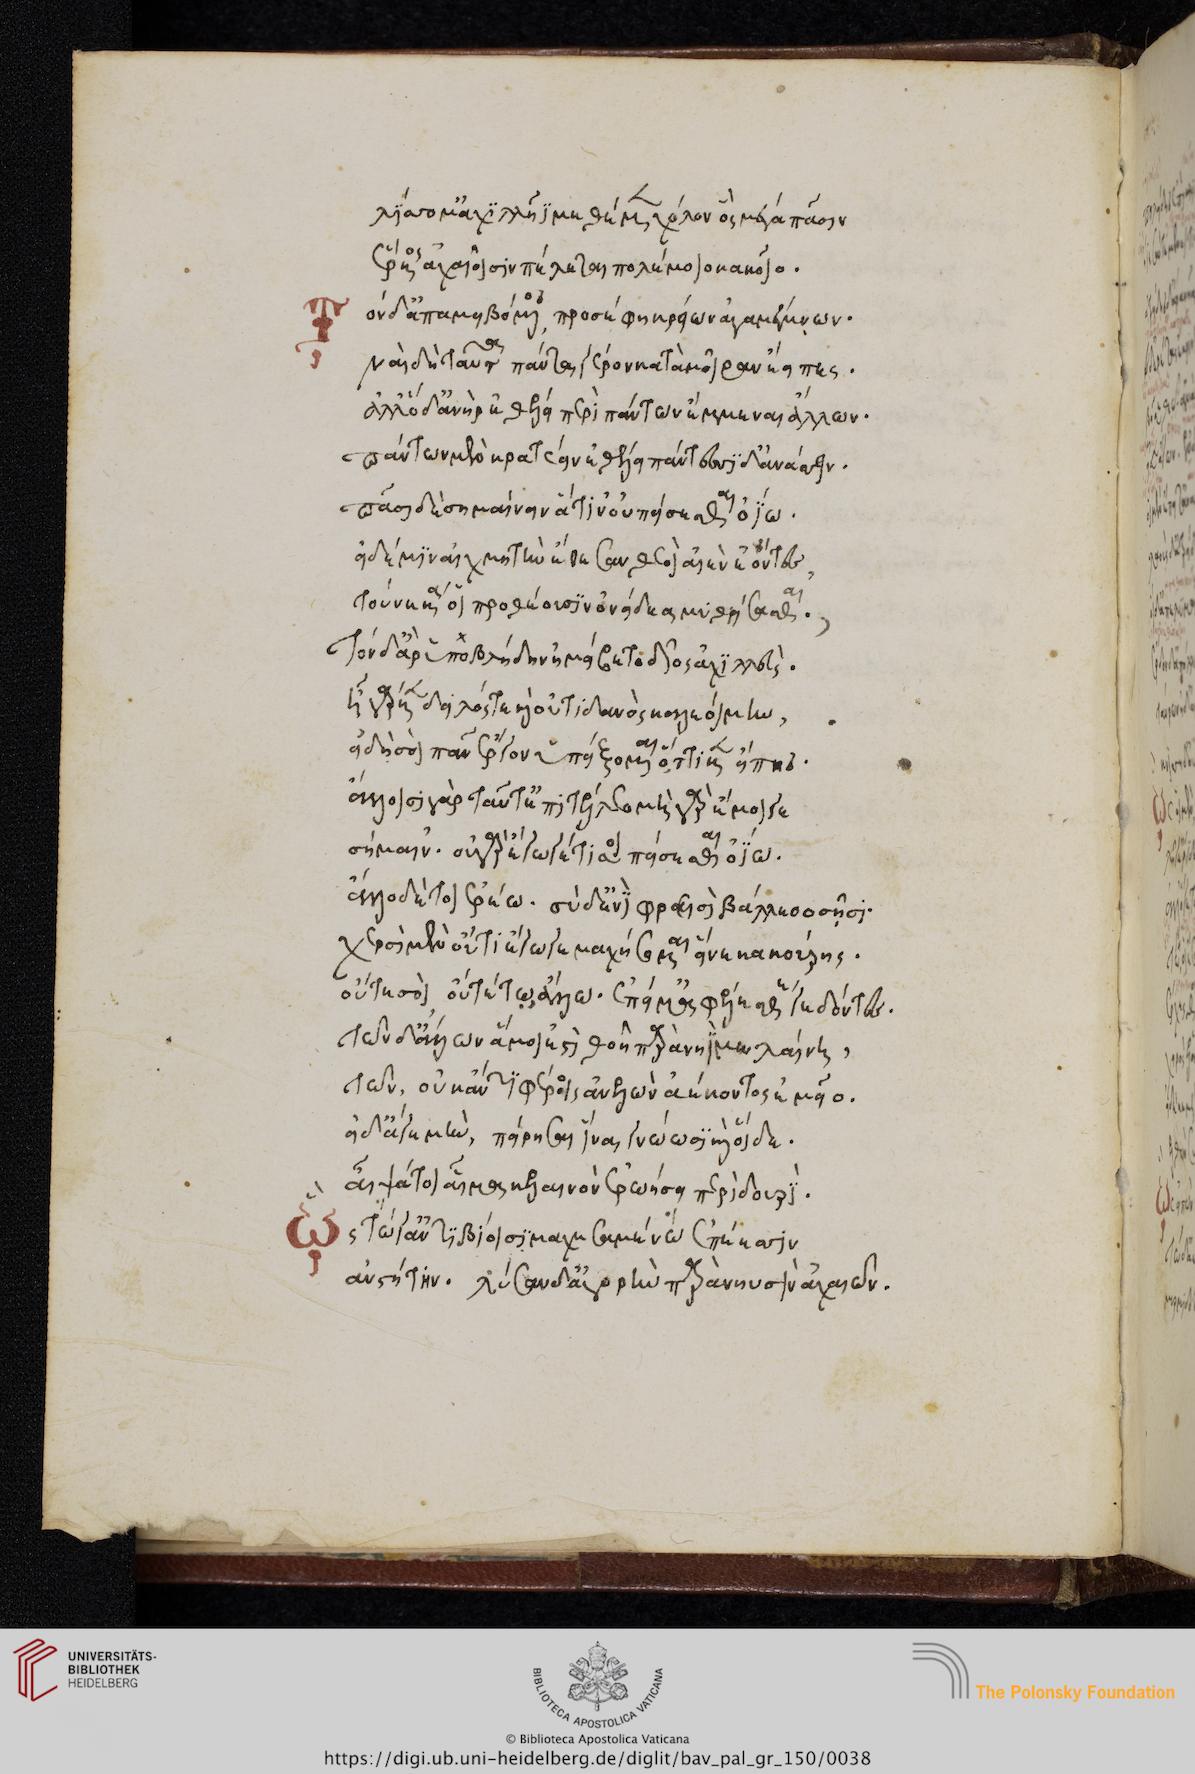 λίσσομ' ἀχιλλῆϊ μεθέμεν χόλον ὃς μέγα πᾶσιν
ἕρκος ἀχαιοῖσιν πέλεται πολέμοιο κακοῖο.
Τὸν δ' ἀπαμειβόμενος, προσέφη κρείων ἀγαμέμνων.
ναὶ δὴ ταῦτα πάντα γέρον κατὰ μοῖραν ἔειπες.
ἀλλ' ὅδ' ἀνὴρ ἐθέλει περὶ πάντων ἔμμεναι ἄλλων.
πάντων μὲν κρατέειν ἐθέλει πάντεσσι δ' ἀνάσσειν.
πᾶσι δὲ σημαίνειν ἅ τιν' οὐ πείσεσθαι ὀΐω.
εἰ δέ μιν αἰχμητὴν ἔθεσαν θεοὶ αἰὲν ἐόντες,
τούνεκά οἱ προθέουσιν ὀνείδεα μυθήσασθαι.
Τὸν δ' ἄρ' ὑποβλήδην ἠμείβετο δῖος ἀχιλλεὺς.
ἦ γάρ κεν δειλός τε καὶ οὐτιδανὸς καλεοίμην,
εἰ δὴ σοὶ πᾶν ἔργον ὑπείξομαι ὅττι κεν εἴπης.
ἄλλοισι γὰρ ταῦτ' ἐπιτέλλεο μὴ γὰρ ἔμοιγε
σήμαιν'. οὐ γὰρ ἔγωγ' ἔτι σοὶ πείσεσθαι ὀΐω.
ἄλλο δέ τοι ἐρέω. σὺ δ' ἐνὶ φρεσὶ βάλλεο σῆσι.
χερσὶ μὲν οὔτι ἔγωγε μαχήσομαι εἵνεκα κούρης.
οὔτε σοὶ οὔτέ τω ἄλλω. ἐπεί μ' ἀφέλεσθέ γε δόντες.
τῶν δ' ἄλλων ἅ μοι ἐστὶ θοῆ παρὰ νηῒ μελαίνη,
τῶν, οὐκ ἄν τι φέροις ἀνελὼν ἀέκοντος ἐμεῖο.
εἰ δ' ἄγε μὴν, πείρησαι ἵνα γνώωσι καὶ οἵδε.
αἶψά τοι αἷμα κελαινὸν ἐρωήσει περὶ δουρί.
Ὣς τώ γ' ἀντιβίοισι μαχησαμένω ἐπέεσσιν
ἀνστήτην. λῦσαν δ' ἀγορὴν παρὰ νηυσὶν ἀχαιῶν.
UNIVERSITÄTS-
BIBLIOTHEK
HEIDELBERG
BIBLIOTECA APOSTOLICA VATICANA
The Polonsky Foundation
© Biblioteca Apostolica Vaticana
https://digi.ub.uni-heidelberg.de/diglit/bav_pal_gr_150/0038